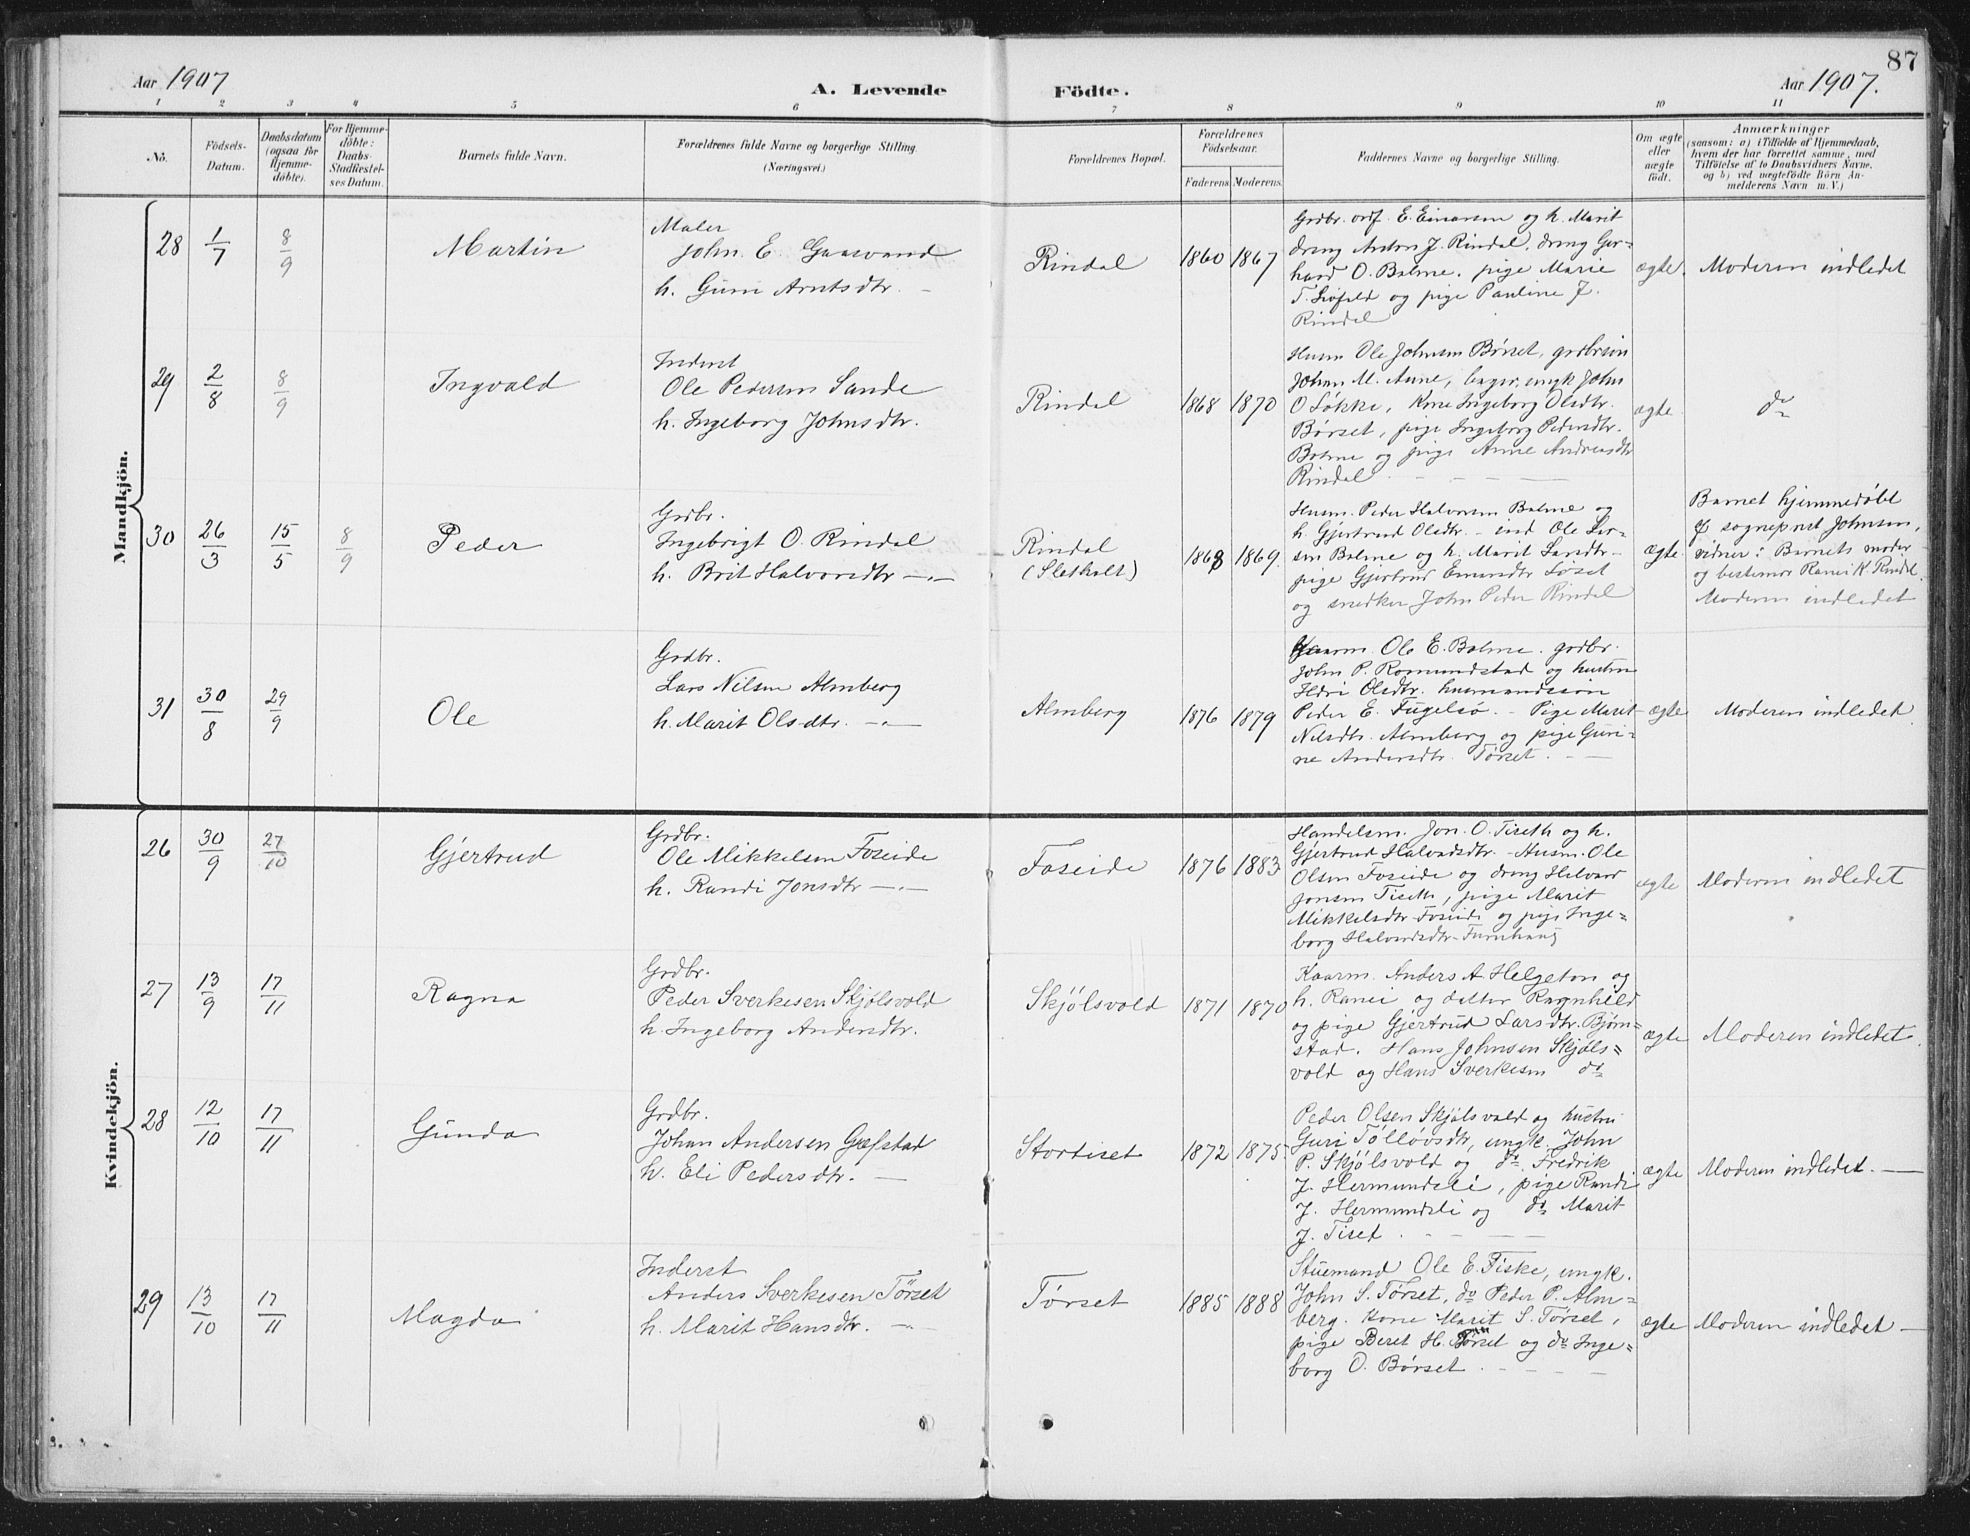 87
Aar 1907
A. Levende
Födte.
Aar 1907.
1 2 3 4 5 6 7 8 9 10 11
No.
Födsels-
Datum.
Daabsdatum
(ogsaa for
Hjemme-
döbte).
For Hjemme-
döbte:
Daabs-
Stadfæstel-
ses Datum.
Barnets fulde Navn.
Forældrenes fulde Navne og borgerlige Stilling.
(Næringsvei.)
Forældrenes Bopæl.
Forældrenes
Födselsaar.
Faderens Moderens.
Faddernes Navne og borgerlige Stilling.
Om ægte
eller
uægte
födt.
Anmærkninger
(saasom: a) i Tilfælde af Hjemmedaab,
hvem der har forrettet samme, med
Tilföielse af to Daabsvidners Navne,
og b) ved uægtefödte Börn An-
melderens Navn m. V.)
Mandkjön.
28
1/7
8/9
Martin
Maler
John E. Gaasvand
h. Guri Arntsdtr. -
Rindal
1860 1867
Grdbr. ordf. E. Einarsen og h. Marit
dreng Anton J. Rindal, dreng Ger=
hard O. Bolme, pige Marie
T. Løfald og pige Pauline J.
Rindal
ægte.
Moderen indledet
29
2/8
8/9
Ingvald
Inderst
Ole Pedersen Sande
h. Ingeborg Johnsdtr.
Rindal
1868 1870
Husm Ole Johnsen Børset, grdbrsøn
Johan M. Aune, bager, ungk John
O Løkke, Kone Ingeborg Olsdtr.
Børset, pige Ingeborg Pedersdtr.
Bolme og pige Anne Andreasdtr
Rindal
ægte
do
30
26/3
15/5
8/9
Peder
Grdbr.
Ingebrigt O. Rindal
h. Brit Halvorsdtr -"-
Rindal
(Sletholt)
1868 1869.
Husm. Peder Halvorsen Bolme og
h. Gjertrud Olsdtr. - ind Ole Lar-
sen Bolme og h. Marit Larsdtr -
pige Gjertrud Einarsdtr Løset
og snedker John Peder Rindal
ægte
Barnet hjemmedøbt
af sogneprest Johnsen,
vidner: Barnets moder
og bestemor Ranei K. Rindal.
Moderen indledet
31
30/8
29/9
Ole
Grdbr.
Lars Nilsen Almberg
h. Marit Olsdtr. -"-
Almberg
1876 1879
Ole E. Bolme. grdbr.
John P. Romundstad og hustru
Olsdtr. husmandssøn
Peder E. Fugelsø. - Pige Marit
Nilsdtr. Almberg og pige Guri=
ne Andersdtr. Tørset.
ægte
Moderen indledet
Kvindekjön.
26
30/9
27/10
Gjertrud
Grdbr.
Ole Mikkelsen Foseide
h. Randi Jonsdtr -"-
Foseide
1876 1883
Handelsm. Jon. O. Tiseth og h.
Gjertrud Halvordsdtr. - Husm. Ole
Olsen Foseide og dreng Halvord
Jonsen Tiseth, pige Marit
Mikkelsdtr Foseide og pige Inge=
borg Halvordsdtr Furuhaug
ægte
Moderen indledet
27
13/9
17/11
Ragna
Grdbr.
Peder Sverkesen Skjølsvold
h. Ingeborg Andersdtr.
Skjølsvold
1871 1870
Kaarm. Anders A Helgeton og
h. Ranei og datter Ragnhild
og pige Gjertrud Larsdtr. Bjørn=
stad. Hans Johnsen Skjøls=
vold og Hans Sverkesen do
ægte
Moderen indledet.
28
12/10
17/11
Gunda
Grdbr.
Johan Andersen Gåfstad
h. Eli Pedersdtr. -
Stortiset
1872 1875
Peder Olsen Skjølsvold og hustru
Guri Tølløvsdtr, ungk. John
P. Skjølsvold og do Fredrik
J. Hermundsli, pige Randi
J. Hermundsli og do Marit
J. Tiset.
ægte
Moderen indledet. -
29
13/10
17/11
Magda
Inderst
Anders Sverkesen Tørset
h. Marit Hansdtr. -"-
Tørset
1885 1888
Stuemand Ole E. Fiske, ungk.
John S. Tørset, do Peder P. Alm=
berg. Kone Marit S. Tørset,
pige Beret H. og do Inge=
borg O. Børset
ægte
Moderen indledet -